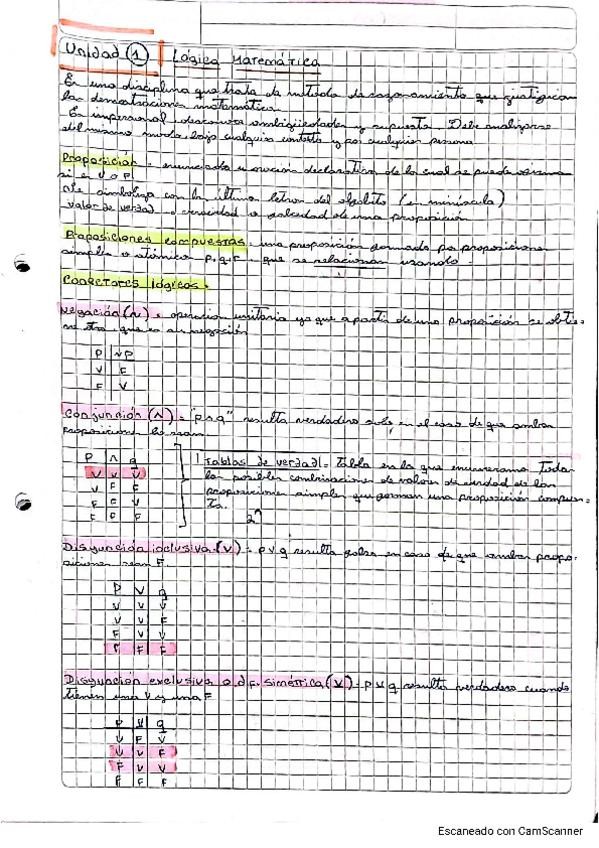 Unidad 1 Lógica Matemática
Es una disciplina que trata de método de razonamiento que justifican
las demostraciones matemática.
Es impersonal, descarta ambigüedades y supuesto. Debe analizarse
del mismo modo bajo cualquier contexto y por cualquier persona.
Proposición = enunciado u oración declarativa de la cual se puede
si es V o F.
se simboliza con la última letras del alfabeto (en minúscula)
valor de verdad = veracidad o falsedad de una proposición
Proposiciones compuestas: una proposición formada por proposiciones
simple o atómica p, q, r. que se relacionan usando
Conectores lógicos.
Negación (~) = operación unitaria ya que a partir de una proposición se obtie-
ne otra que es su negación
P ~P
V F
F V
Conjunción (^) = "p ^ q" resulta verdadero solo en el caso de que ambas
proposiciones lo sean.
P ^ q
V V V
V F F
F F V
F F F
Tablas de verdad = Tabla en la que enumeramos todas
las posibles combinaciones de valores de verdad de las
proposiciones simples que forman una proposición compues-
ta.
2^n
Disyunción inclusiva (v) = p v q resulta falsa en caso de que ambas propo-
siciones sean F.
P V q
V V V
V V F
F V V
F F F
Disyunción exclusiva o dif. simétrica (v) = p v q resulta verdadero cuando
tienen una V y una F
P v q
V F V
V V F
F V V
F F F
Escaneado con CamScanner